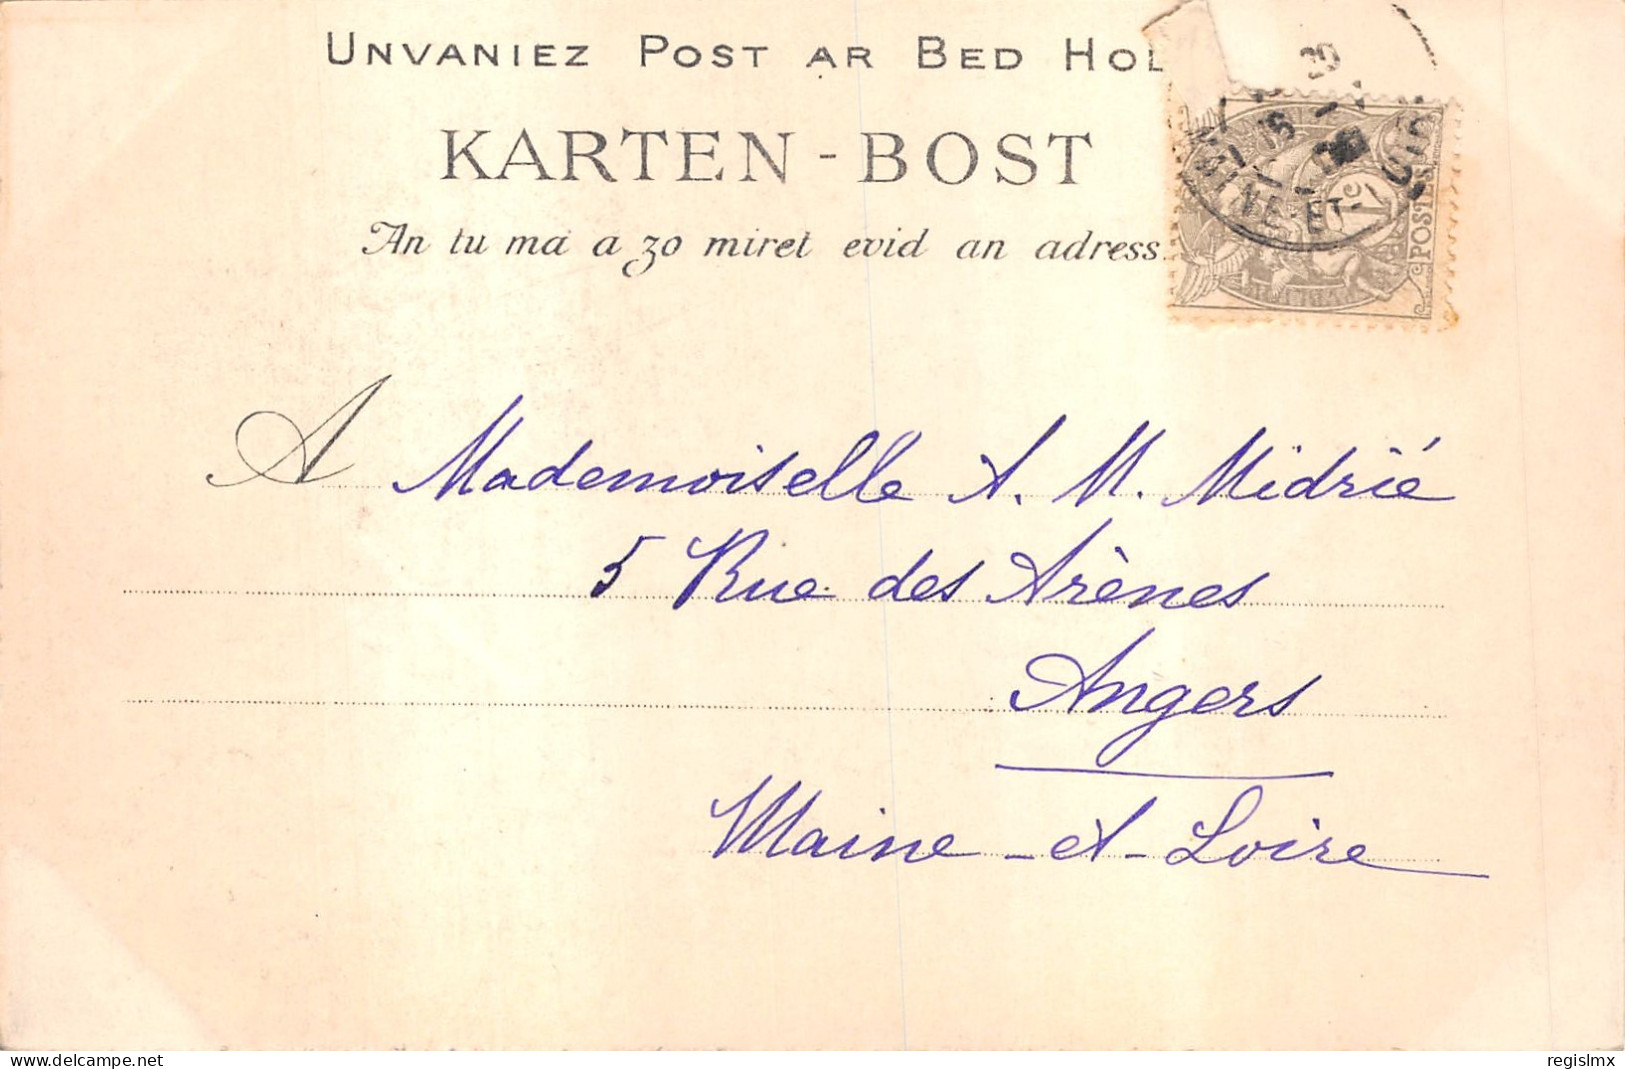 UNVANIEZ POST AR BED HOL
KARTEN-BOST
An tu ma a zo miret evid an adress.
15
1
NE-ET-
1c
POSTES
A Mademoiselle A. M. Midrié
5 Rue des Arènes
Angers
Maine-et-Loire
delcampe.net
regislmx